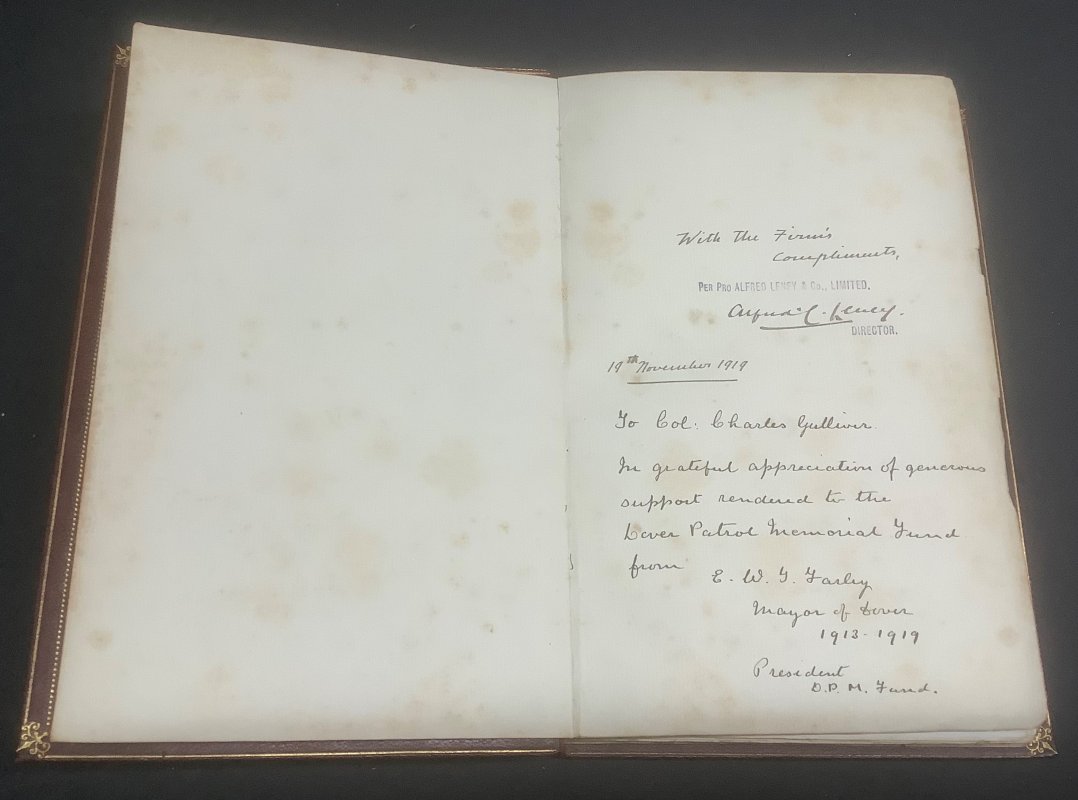 With the Firm's
Compliments,
PER PRO ALFRED LENEY & Co., LIMITED.
Alfred C. Leney.
DIRECTOR.
19th November 1919
To Col: Charles Gulliver.
In grateful appreciation of generous
support rendered to the
Dover Patrol Memorial Fund
from
E. W. T. Farley
Mayor of Dover
1913-1919
President
D.P.M. Fund.